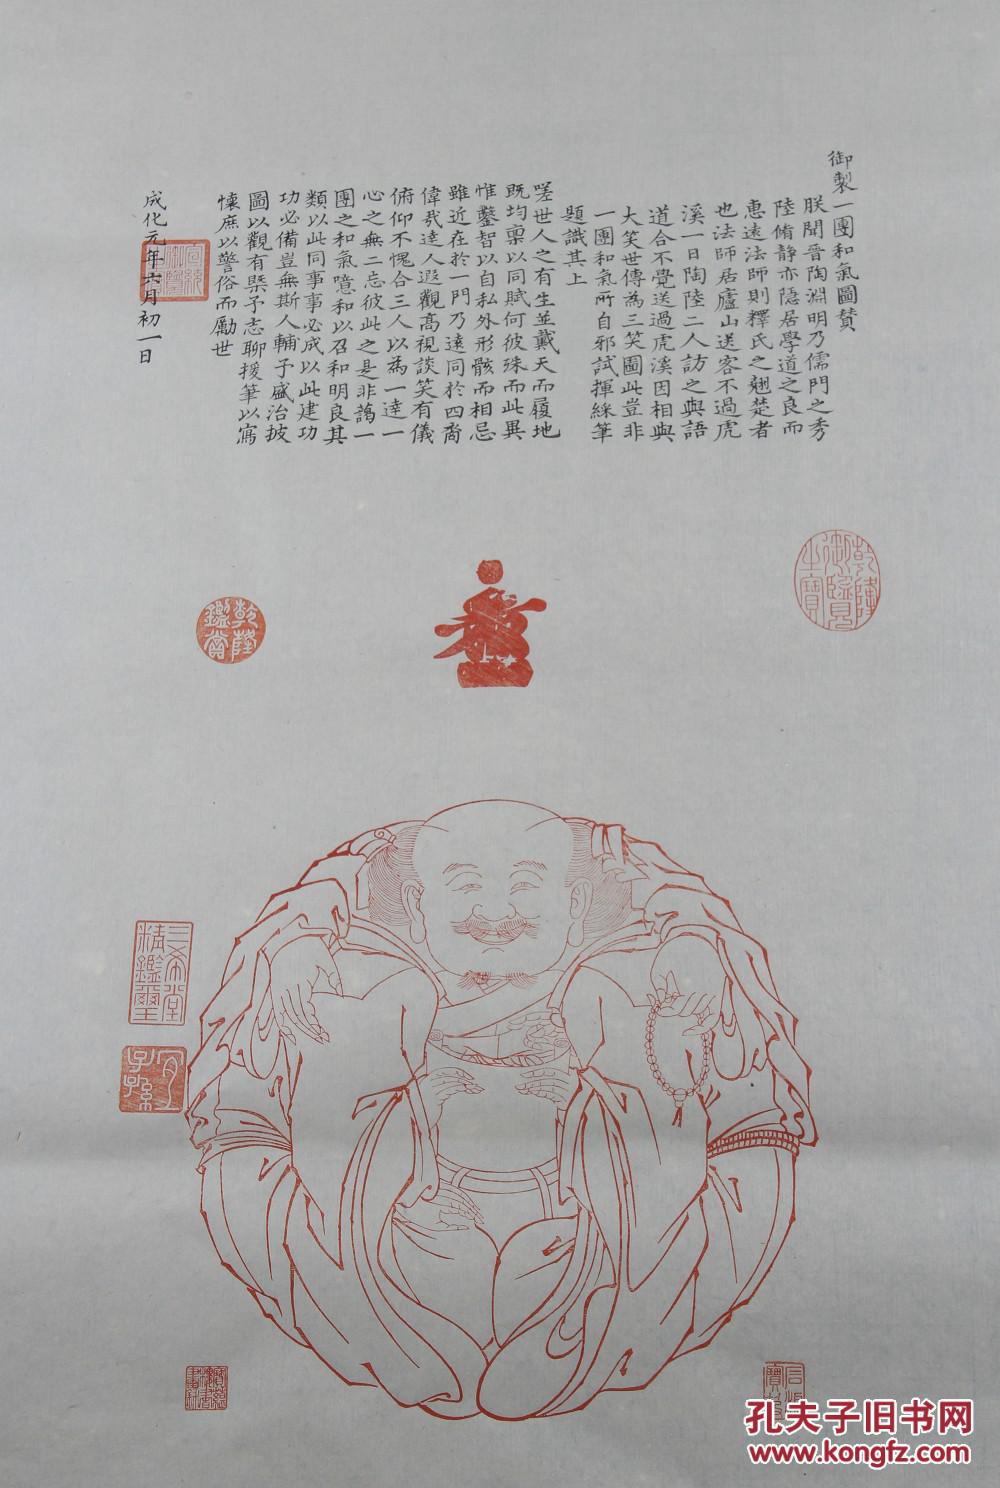 御製一團和氣圖贊
朕聞晉陶淵明乃儒門之秀
陸脩静亦隱居學道之良而
惠遠法師則釋氏之翹楚者
也法師居廬山送客不過虎
溪一日陶陸二人訪之與語
道合不覺送過虎溪因相與
大笑世傳為三笑圖此豈非
一團和氣所自邪試揮綵筆
題識其上
嗟世人之有生並戴天而履地
既均禀以同賦何彼殊而此異
惟鑿智以自私外形骸而相忌
雖近在於一門乃遠同於四裔
偉哉達人遐觀高視談笑有儀
俯仰不愧合三人以為一達一
心之無二忘彼此之是非藹一
團之和氣噫和以召和明良其
類以此同事事必成以此建功
功必備豈無斯人輔予盛治披
圖以觀有槩予志聊援筆以寫
懷庶以警俗而勵世
成化元年六月初一日
乾隆御覽之寶
乾隆鑑賞
三希堂精鑑璽
宜子孫
孔夫子旧书网
www.kongfz.com